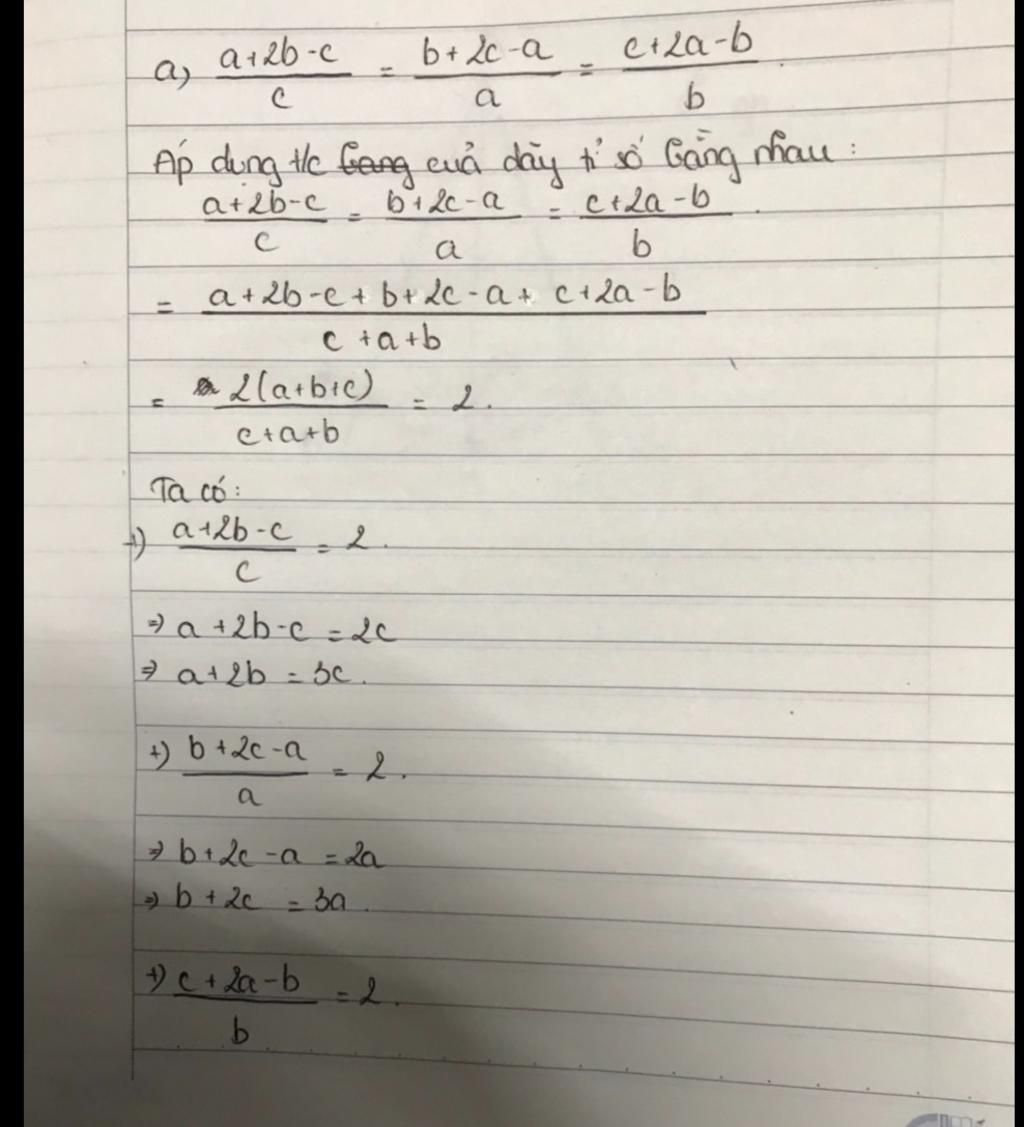 a, (a+2b-c)/c = (b+2c-a)/a = (c+2a-b)/b.
Áp dụng t/c của dãy tỉ số bằng nhau:
(a+2b-c)/c = (b+2c-a)/a = (c+2a-b)/b.
= (a+2b-c+b+2c-a+c+2a-b)/(c+a+b)
= 2(a+b+c)/(c+a+b) = 2.
Ta có:
+) (a+2b-c)/c = 2.
⇒ a+2b-c = 2c
⇒ a+2b = 3c.
+) (b+2c-a)/a = 2.
⇒ b+2c-a = 2a
⇒ b+2c = 3a.
+) (c+2a-b)/b = 2.